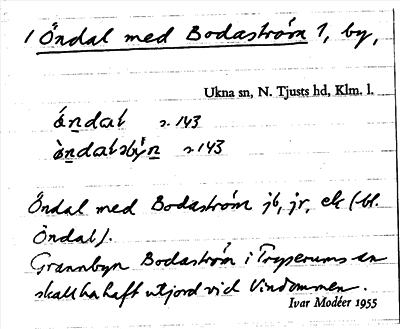 1 Öndal med Bodaström 1, by,
Ukna sn, N. Tjusts hd, Klm. l.
óndal s. 143
òndalsby̕n s. 143
Öndal med Bodaström jb, jr, ek (bl.
Öndal).
Grannbyn Bodaström i Tryserums sn
skall ha haft utjord vid Vindommen.
Ivar Modéer 1955